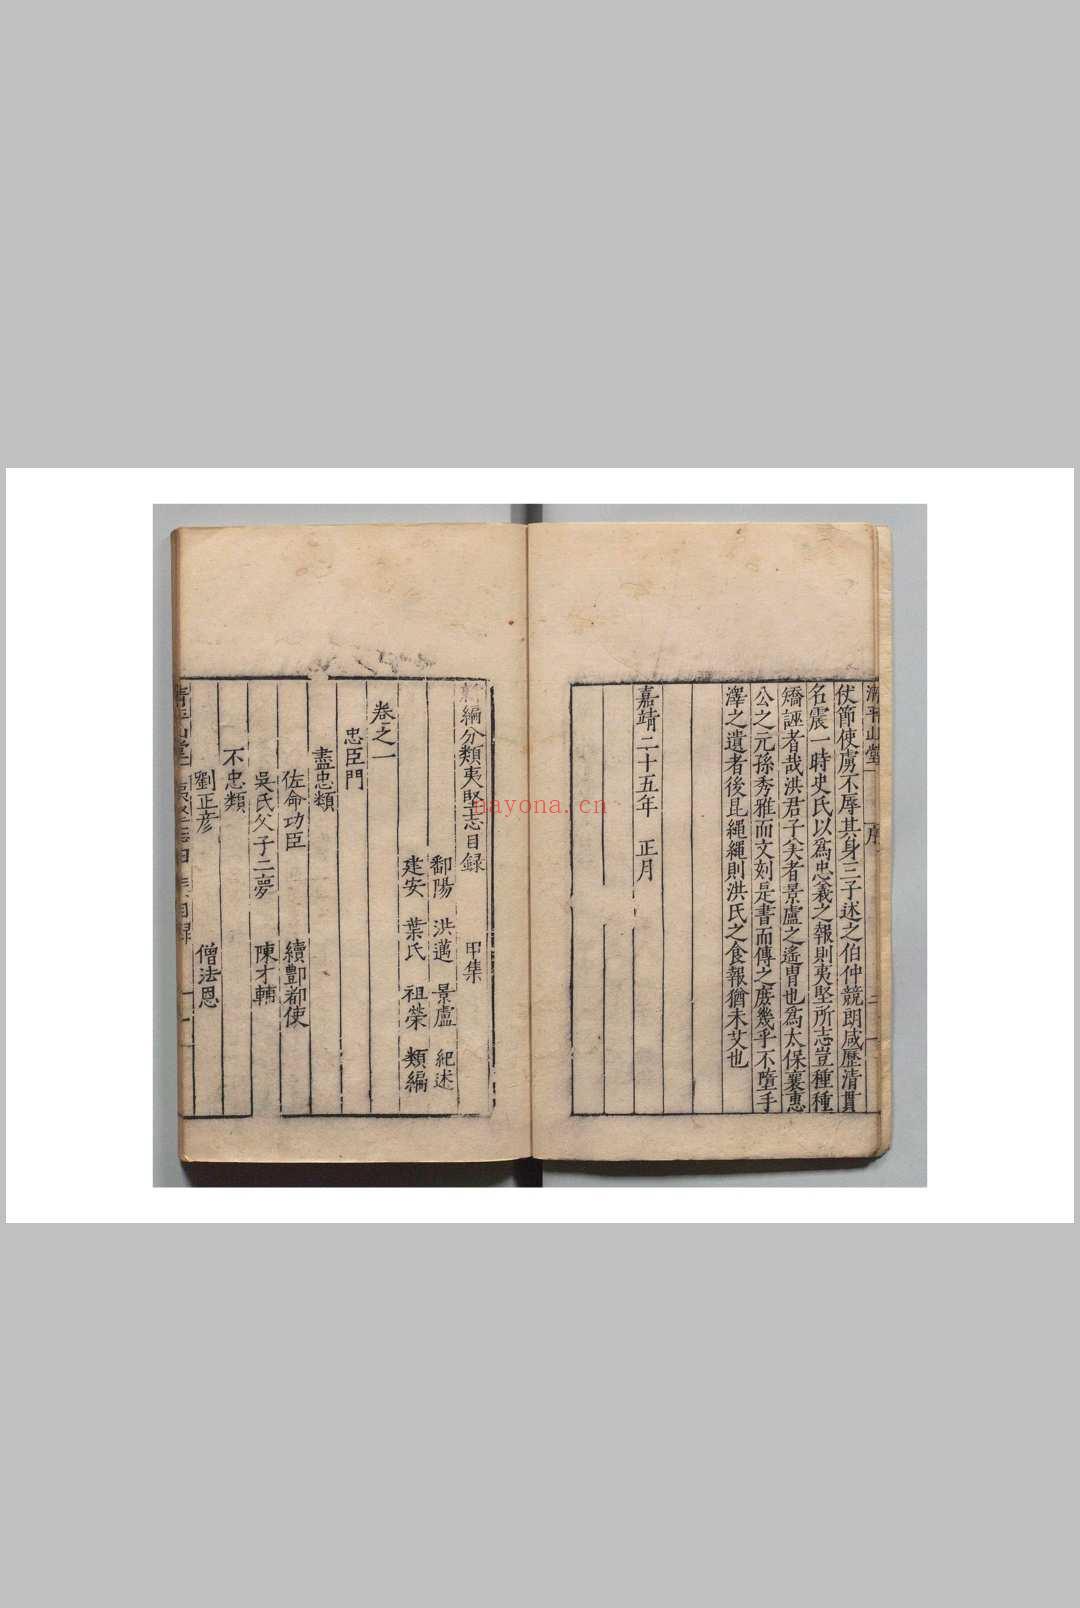 清平山堂 序 二
仗節使虜不辱其身三子述之伯仲競朗咸歷清貫
名震一時史氏以為忠義之報則夷堅所志豈種種
矯誣者哉洪君子美者景盧之遙冑也為太保襄惠
公之元孫秀雅而文刻是書而傳之庶幾乎不墮手
澤之遺者後昆繩繩則洪氏之食報猶未艾也
嘉靖二十五年 正月
新編分類夷堅志目録 甲集
鄱陽 洪邁 景盧 紀述
建安 葉氏 祖榮 類編
卷之一
忠臣門
盡忠類
佐命功臣 續酆都使
吳氏父子二夢 陳才輔
不忠類
劉正彦 僧法恩
清平山堂 夷堅志甲集目録 一
nayona.cn